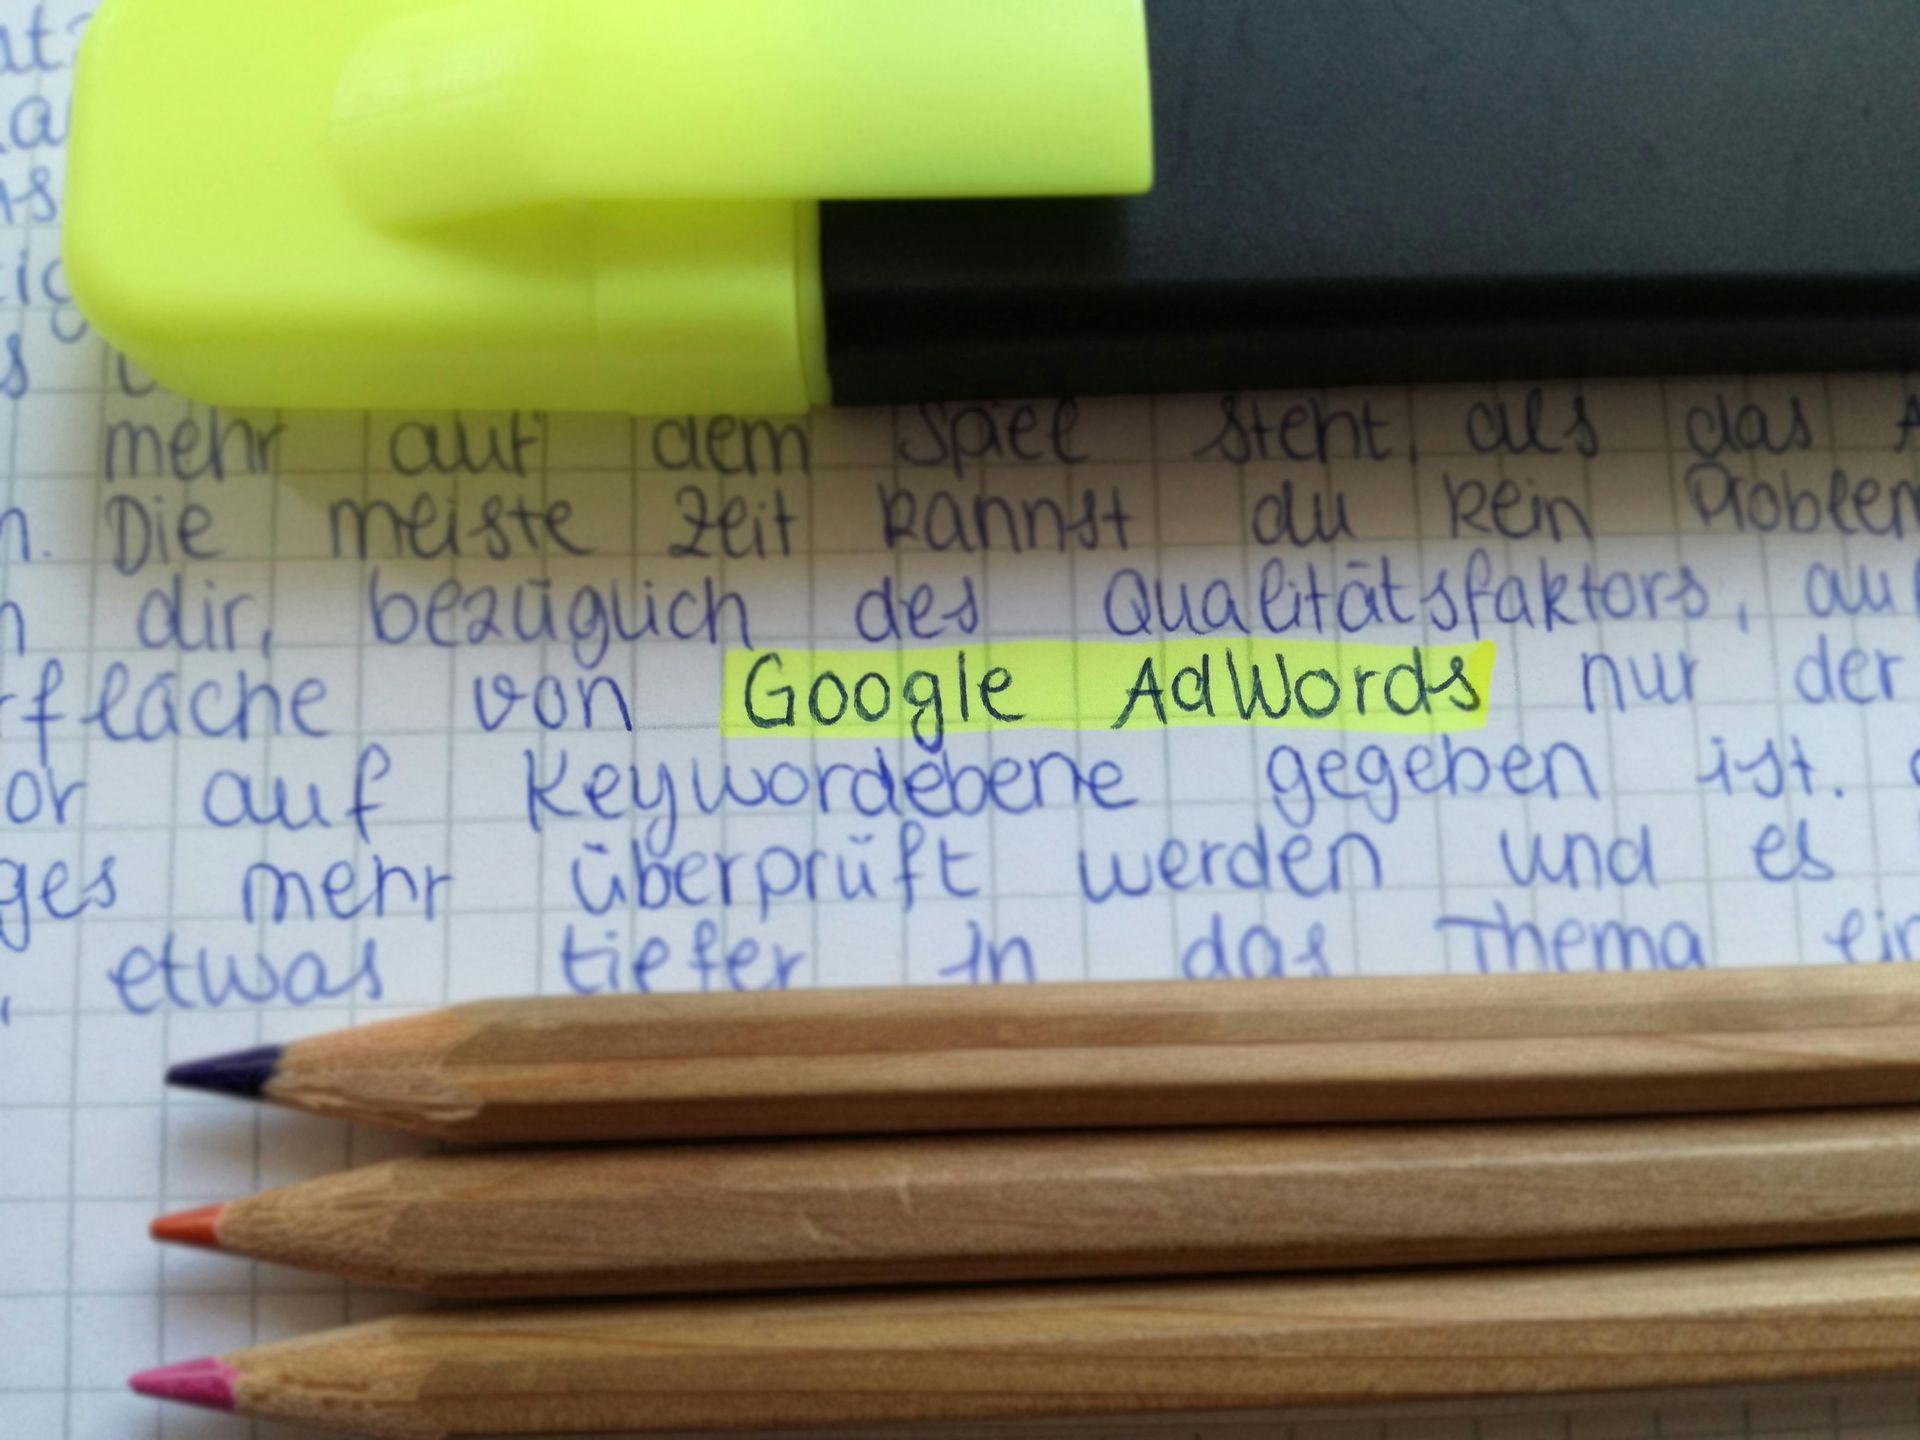 mehr auf dem Spiel steht, als das
Die meiste Zeit kannst du kein
dir, bezüglich des Qualitätsfaktors, auf
von Google AdWords nur der
auf Keywordebene gegeben ist.
mehr überprüft werden und es
etwas tiefer in das Thema